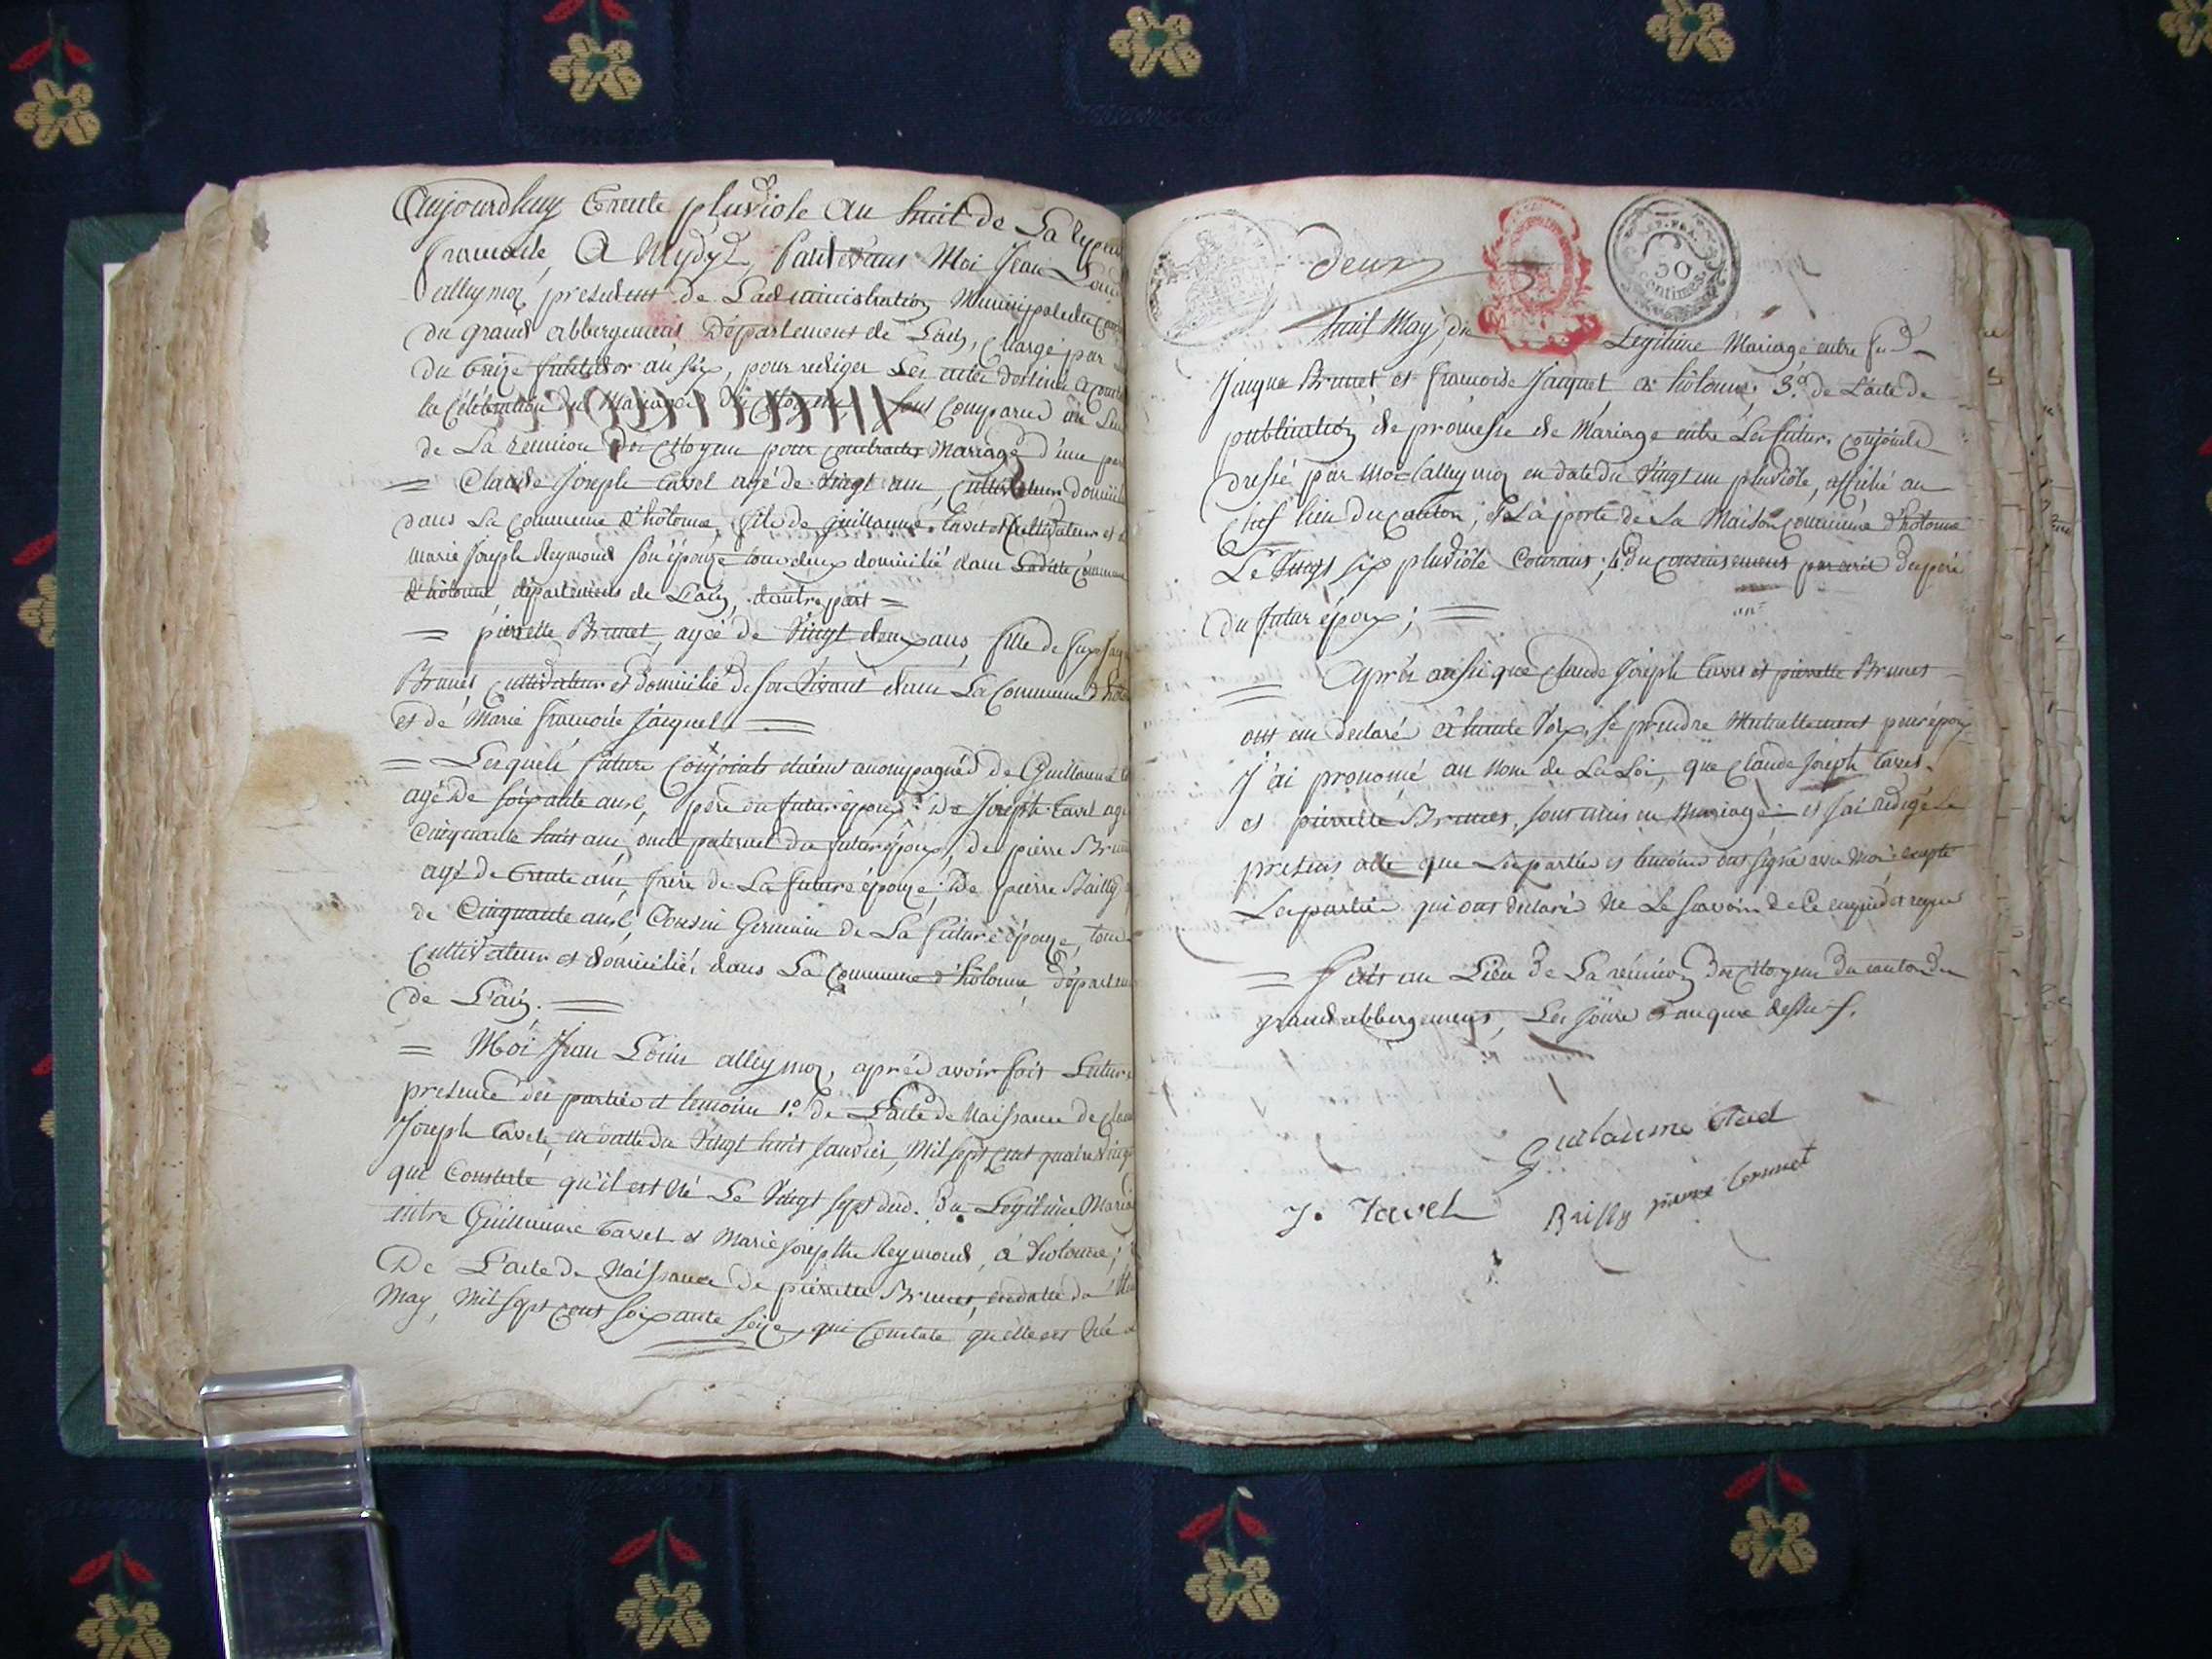 Aujourdhuy trente pluviose an huit de La repu
francaise, a Mydy, pardevant Moi Jean Louis
alleymoz president de Ladministration Municipale du can
du grand abbergement Département de Lain, chargé par
du treize fructidor an six, pour rediger Les actes destinés a const
la célébration du Mariage des citoyens, sont comparus au Lieu
de La reunion des citoyens pour contracter Mariage d'une part
= Claude Joseph tavel agé de vingt ans, cultivateur domicil
dans La commune d'hotonne, fils de guillaume tavel cultivateur et de
marie Joseph Reymond son épouse tous deux domicilié dans Laditte commune
d'hotonne département de Lain, dautre part =
= pierrette Brunet, agée de vingt deux ans, fille de feu Jacq
Brunet cultivateur et domicilié de son vivant dans La Commune d'hoto
et de Marie francoise Jacquet =
= Lesquels futurs conjoints étaient accompagnés de Guillaume t
agé de soixante ans, père du futur époux; de Joseph tavel agé
cinquante huit ans, oncle paternel du futur époux, de pierre Brun
agé de trente ans frère de La future épouze; de pierre Bailly a
de cinquante ans, Cousin Germain de La future épouze, tous
cultivateurs et domiciliés dans La Commune d'hotonne département
de L'ain. =
= Moi Jean Louis alleymoz, après avoir fait Lecture
presence des parties et temoins 1.º de L'acte de Naissance de Claude
Joseph tavel, en datte du vingt huit Janvier, Mil sept cent quatre vingt
qui Constate qu'il est né Le vingt sept dud. du Légitime Mariage
entre Guillaume tavel et Marie Josephte Reymond, à hotonne;
De L'acte de Naissance de pierrette Brunet, en datte du
May, Mil sept cent soixante seize, qui Constate qu'elle est née
deux
REP. FRA.
50
centimes.
huit May, du Legitime Mariage entre feu
Jacque Brunet et francoise Jacquet a hotonne; 3.º de L'acte de
publication de promesse de Mariage entre Les futurs conjoints
dressé par moi alleymoz en date du vingt un pluviôse, affiché au
chef lieu du canton, et La porte de La Maison commune d'hotonne
Le vingt six pluviôse courant; 4.º du consentement par écrit du père
du futur époux; =
= Après aussi que Claude Joseph tavel et pierrette Brunet
ont eu déclaré à haute voix, se prendre Mutuellement pour époux
J'ai prononcé au nom de La Loi, que Claude Joseph tavel
et pierrette Brunet, sont unis en Mariage; et j'ai rédigé le
présent acte que Les parties et temoins ont signé avec Moi, excepté
Les parties qui ont déclaré Ne Le sçavoir de Ce enquis et requis
= fait au Lieu de La réunion des citoyens du canton du
grand abbergement, Les jour et an que dessus.
Guilaume Tavel
J. Tavel Bailly pierre